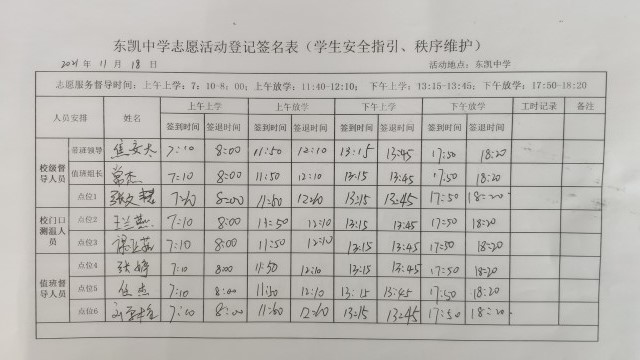 东凯中学志愿活动登记签名表（学生安全指引、秩序维护）
2021年 11月 18日 活动地点：东凯中学
志愿服务督导时间：上午上学：7：10-8；00； 上午放学：11:40-12:10； 下午上学：13:15-13:45；下午放学：17:50-18:20
人员安得 姓名 上午上学 上午放学 下午上学 下午放学 工时记录 备注
签到时间 签退时间 签到时间 签退时间 签到时间 签退时间 签到时间 签退时间
校级督导人员 带班领导 焦安太 7:10 8:00 11:50 12:10 13:15 13:45 17:50 18:20
值班组长 常杰 7:10 8:00 11:50 12:10 13:15 13:45 17:50 18:20
点位1 8:00 11:50 13:15 13:45 17:50 18:20
校门口测温人员 点位2 王兰燕 7:10 8:00 11:50 12:10 13:15 13:45 17:50 18:20
点位3 7:10 8:00 11:50 12:10 13:15 13:45 17:50 18:20
值班督导人员 点位4 张婷 7:10 8:00 11:50 12:10 13:15 13:45 17:50 18:20
点位5 焦杰 7:10 8:00 11:50 12:10 13:15 13:45 17:50 18:20
点位6 8:00 13:15 13:45 17:50 18:20